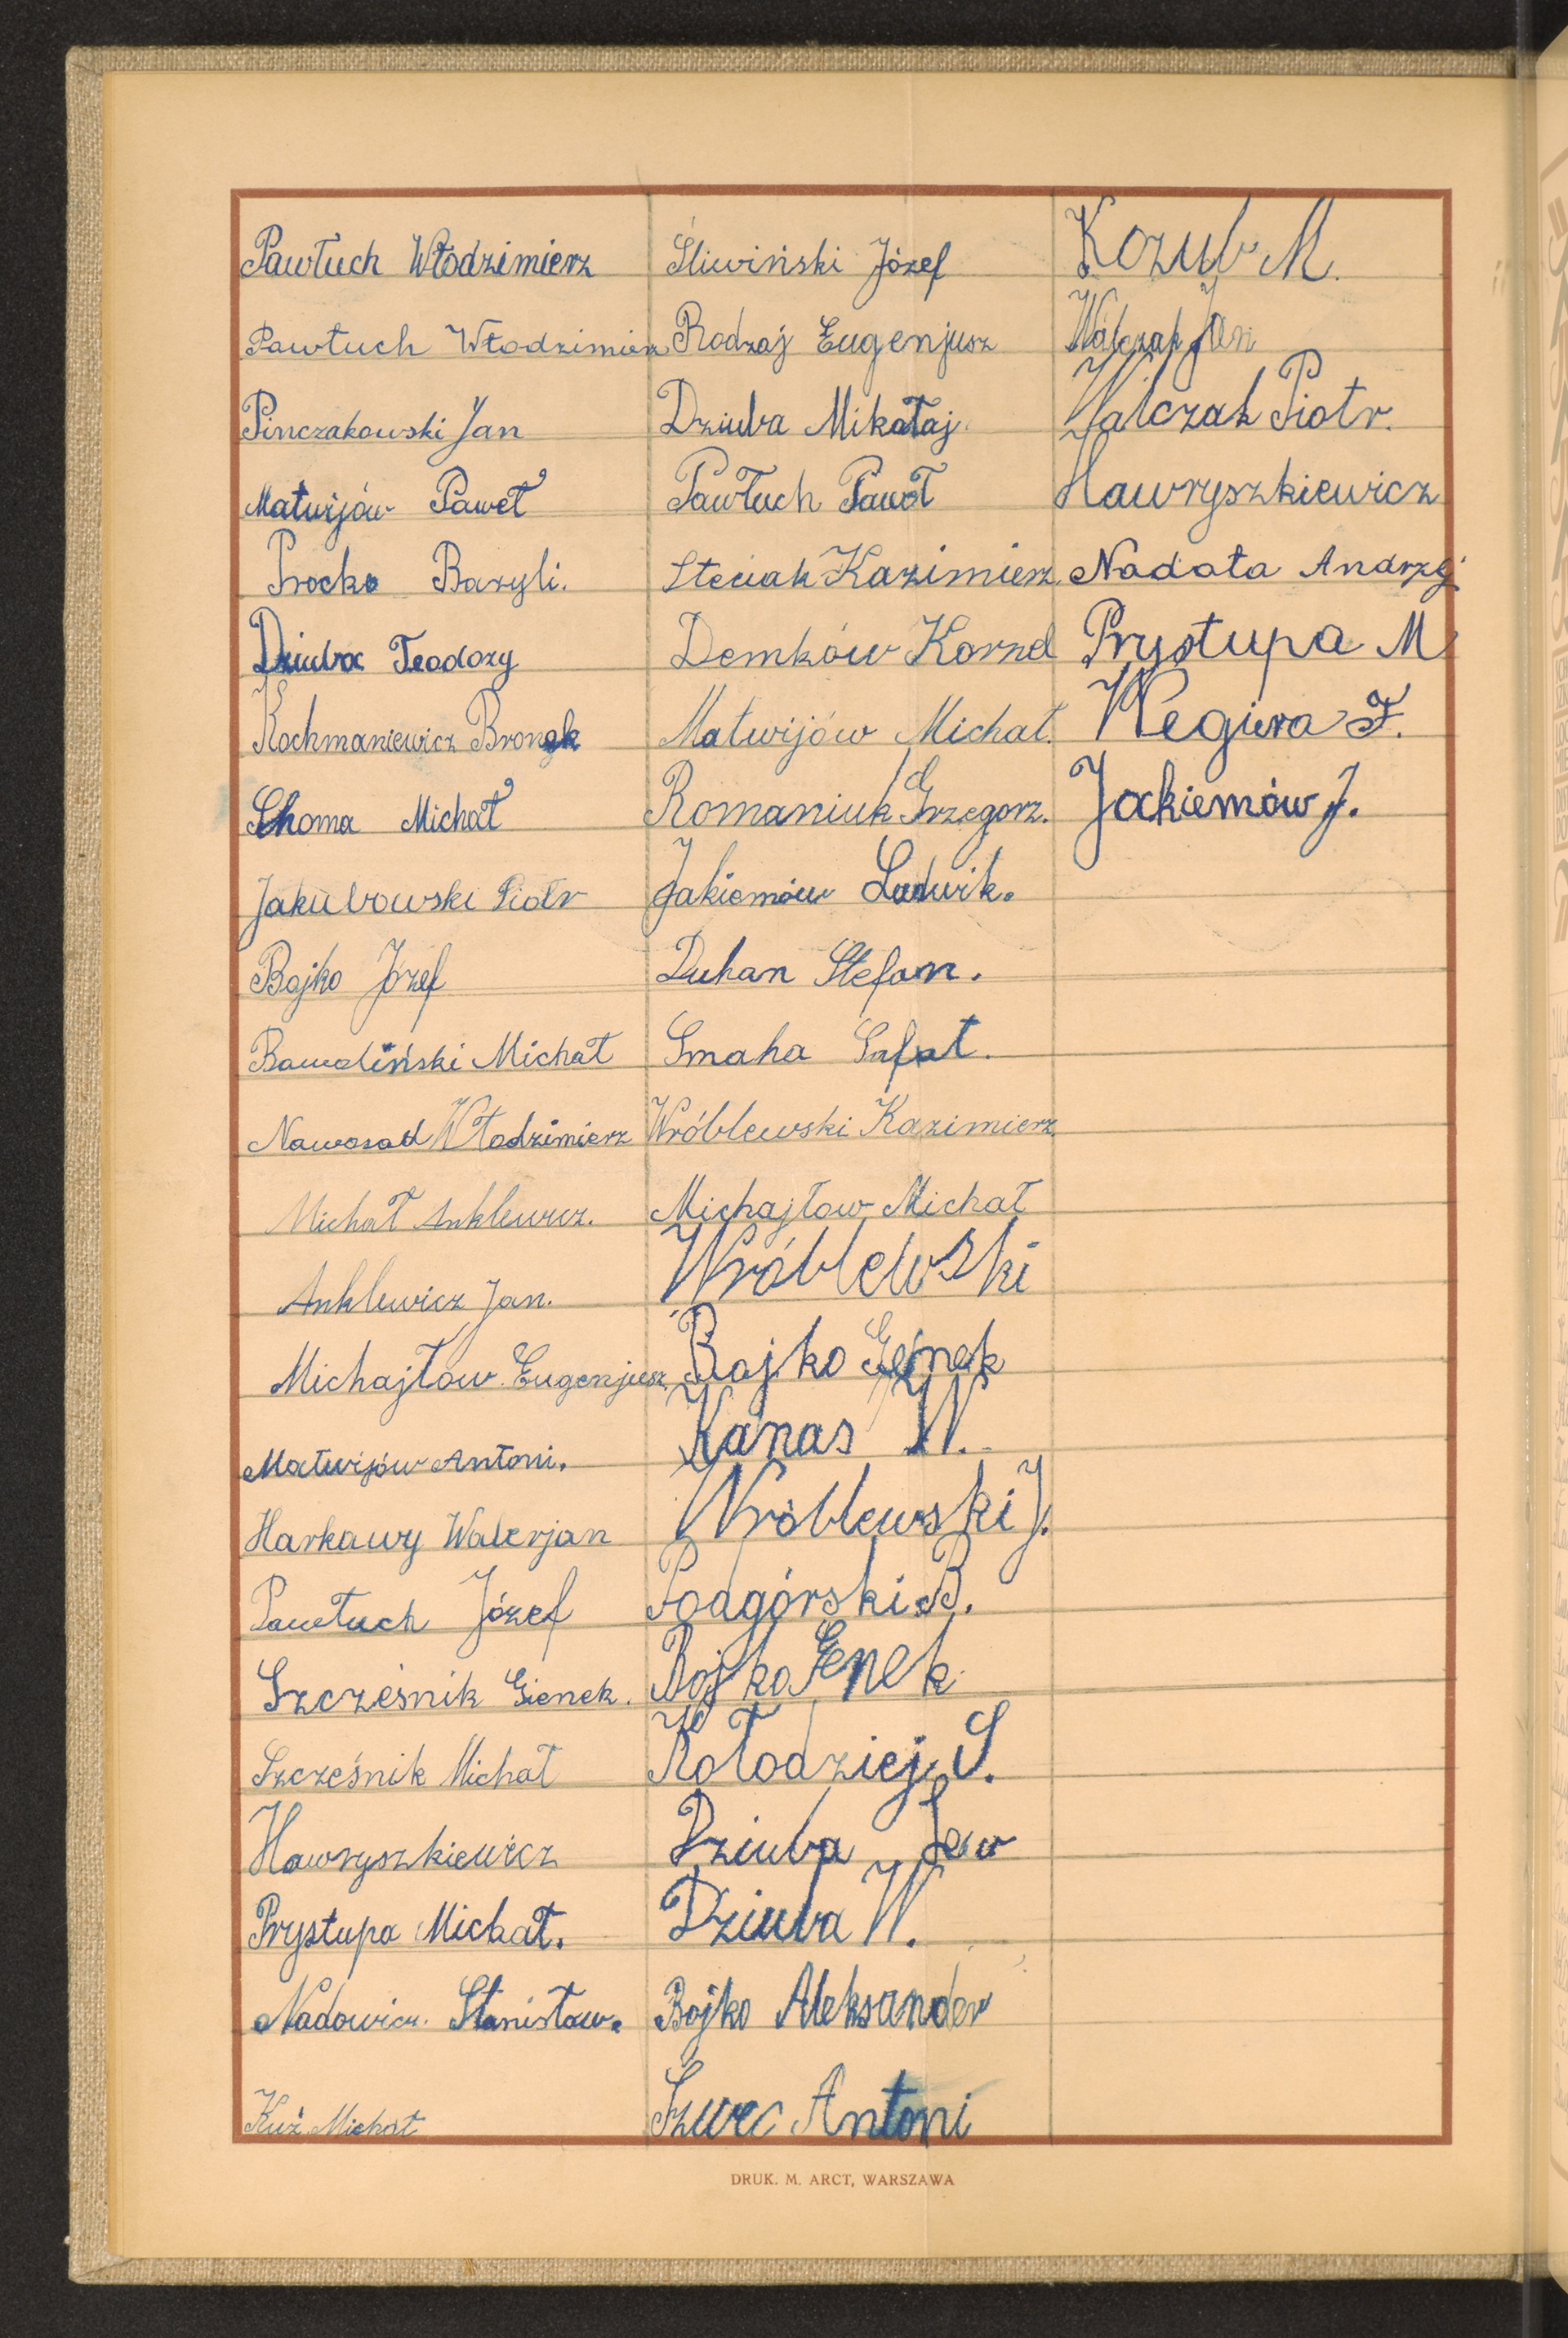 Pawłuch Włodzimierz
Pawłuch Włodzimierz
Pinczakowski Jan
Matwijów Paweł
Procko Bazyli.
Dziuba Teodozy
Kochmaniewicz Bronek
Choma Michał
Jakubowski Piotr
Bojko Józef
Bawoliński Michał
Nawosad Włodzimierz
Michał Anklewicz.
Anklewicz Jan.
Michajłow Eugenjusz.
Matwijów Antoni.
Harkawy Walerjan
Pawłuch Józef
Szcześnik Gienek.
Szcześnik Michał
Hawryszkiewicz
Prystupa Michał.
Nadowicz. Stanisław.
Kuź Michał
Śliwiński Józef
Rodzaj Eugenjusz
Dziuba Mikołaj.
Pawłuch Pawół
Steciak Kazimierz
Demków Kornel
Matwijów Michał.
Romaniuk Grzegorz.
Jakiemów Ludwik.
Duhan Stefan.
Smaha Safat.
Wróblewski Kazimierz.
Michajłow Michał
Wróblewski
Bojko Genek
Kanas W.
Wróblewski J.
Podgórski B.
Bojko Genek
Kołodziej S.
Dziuba Lew
Dziuba W.
Bojko Aleksander
Szwec Antoni
Kozub M.
Walczak Jan
Walczak Piotr.
Hawryszkiewicz
Nadała Andrzej
Prystupa M
Węgiera F.
Jakiemów J.
DRUK. M. ARCT, WARSZAWA